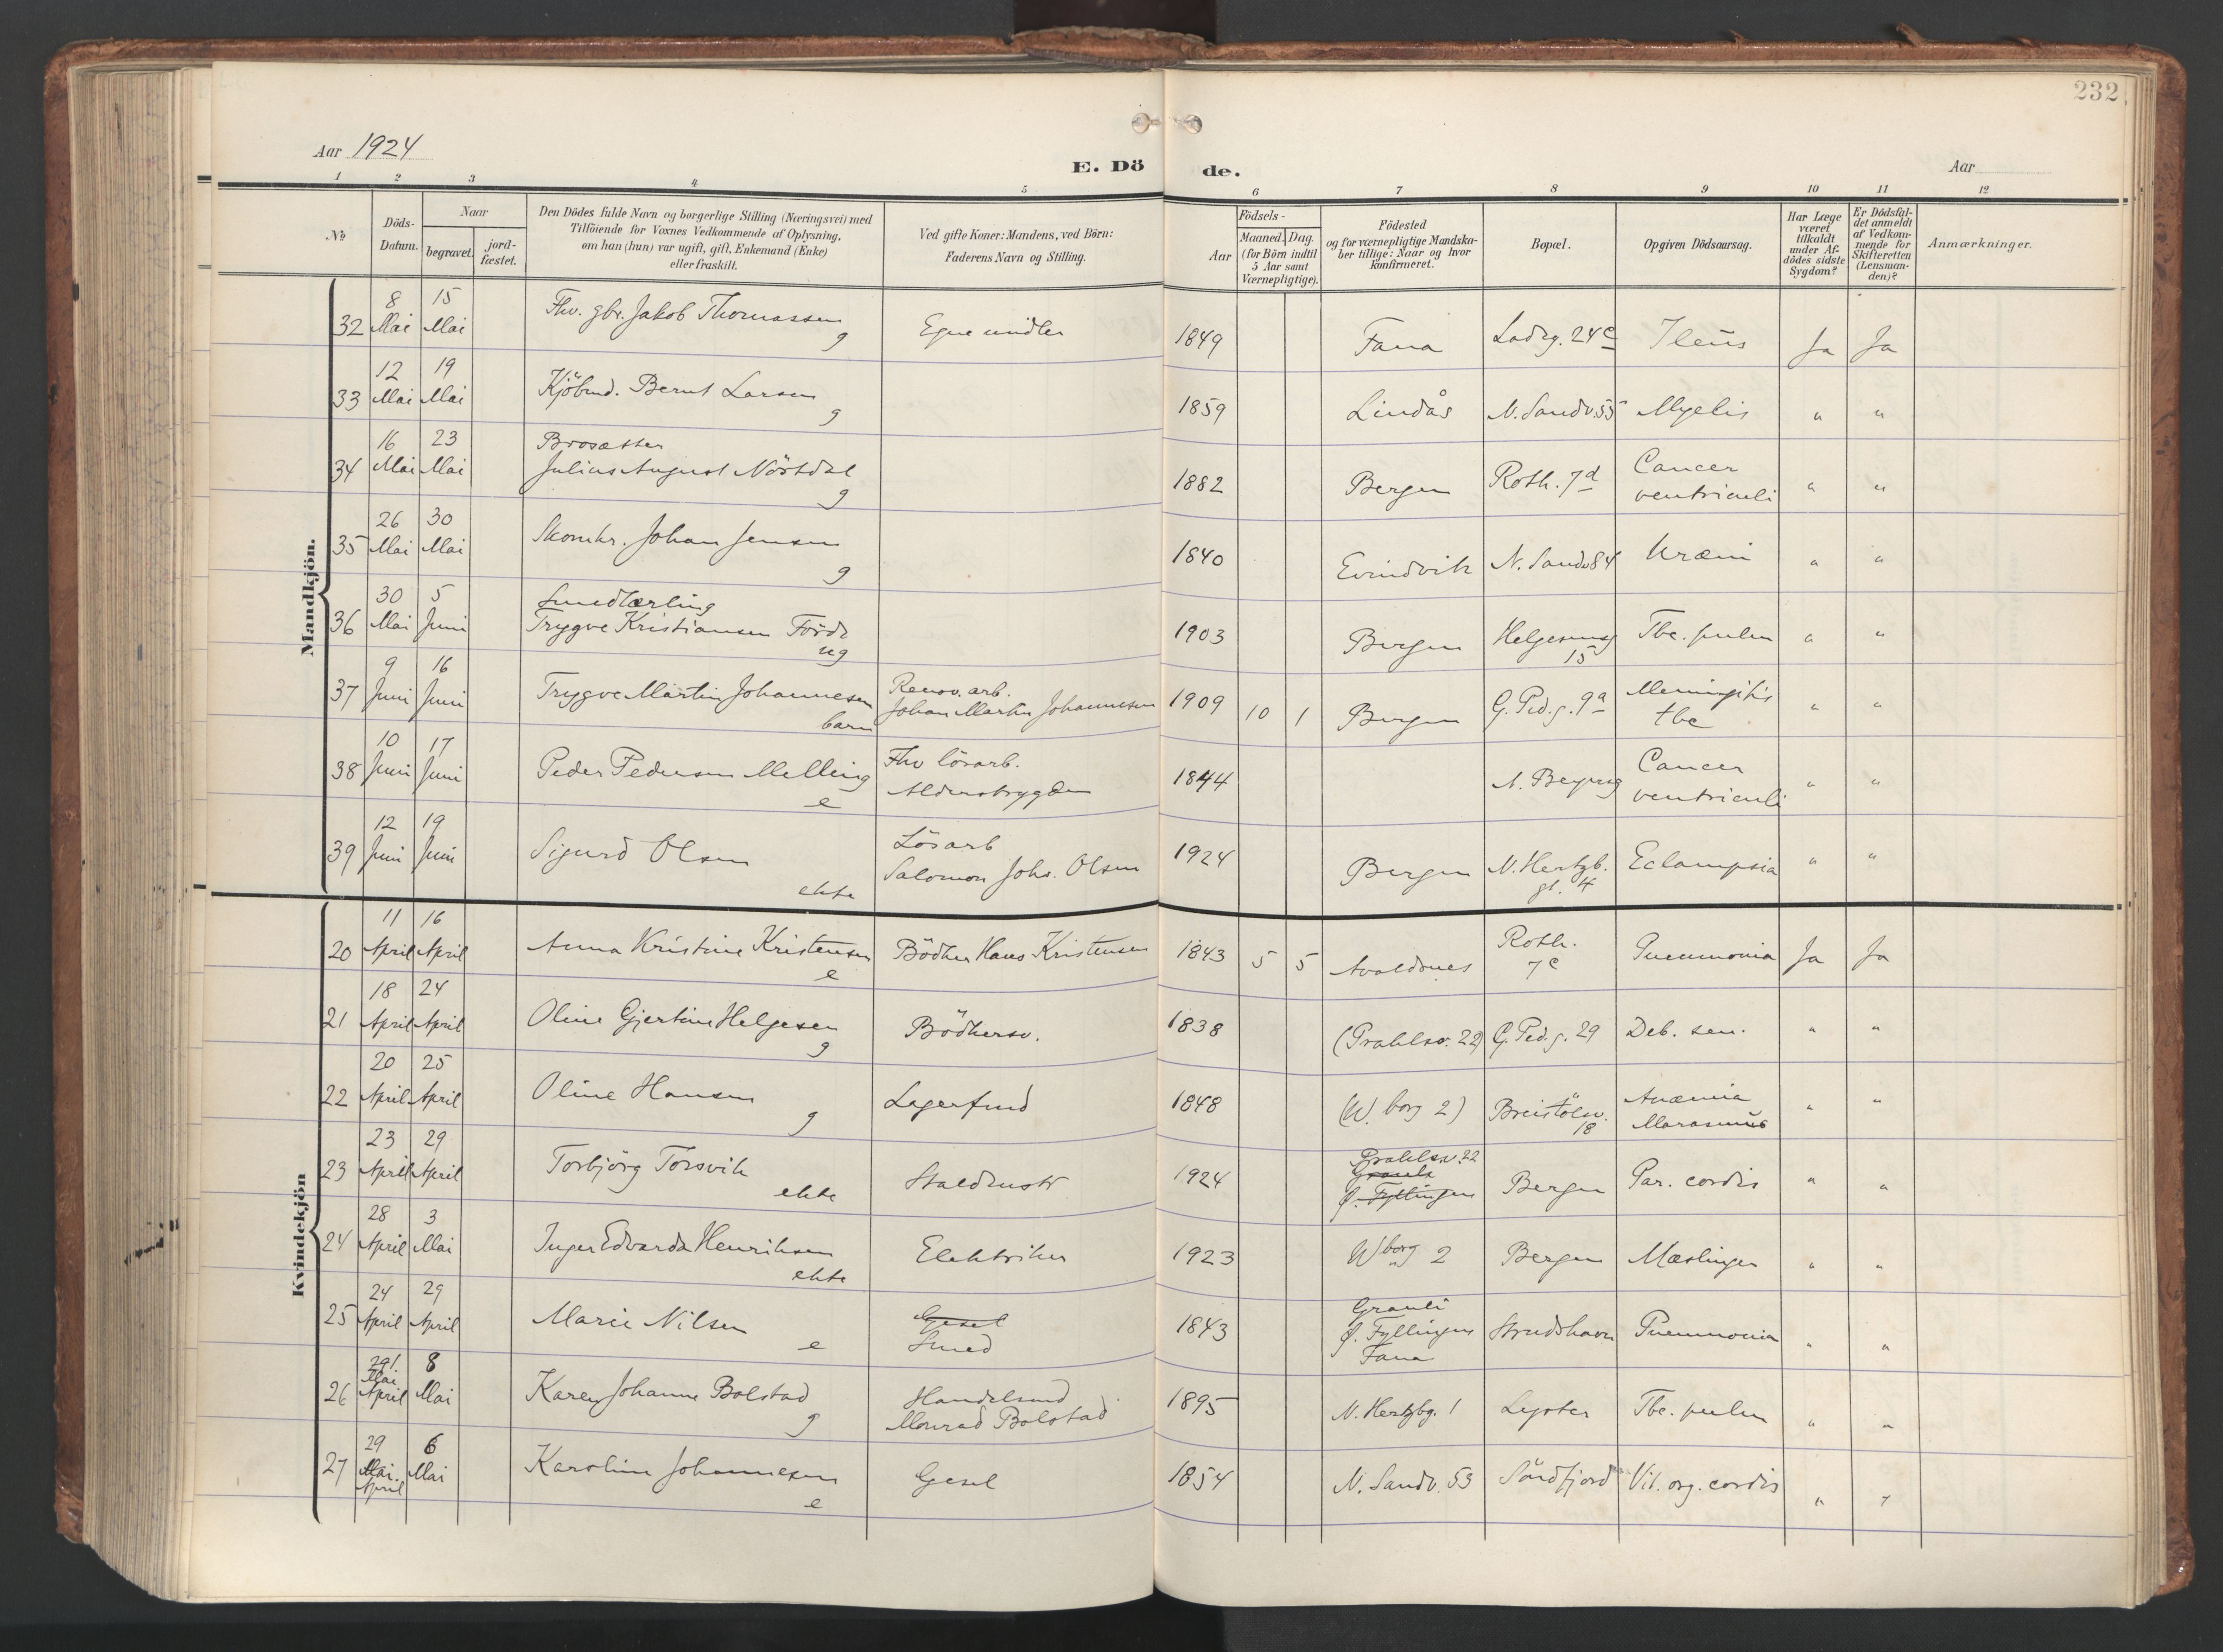 232
Aar 1924
E. Dö
de.
Aar
1 2 3 4 5 6 7 8 9 10 11 12
No
Döds-
Datum.
Naar
begravet.
jord-
fæstet.
Den Dödes fulde Navn og borgerlige Stilling (Næringsvei) med
Tilföiende for Voxnes Vedkommende af Oplysning,
om han (hun) var ugift, gift, Enkemand (Enke)
eller fraskilt.
Ved gifte Koner: Mandens, ved Börn:
Faderens Navn og Stilling.
Födsels-
Aar
Maaned. Dag.
(for Börn indtil
5 Aar samt
Værnepligtige).
Födested
og for værnepligtige Mandska-
ber tillige: Naar og hvor
konfirmeret.
Bopæl.
Opgiven Dödsaarsag.
Har Læge
været
tilkaldt
under Af-
dödes sidste
Sygdom?
Er Dödsfal-
det anmeldt
af Vedkom-
mende for
Skifteretten
(Lensman-
den)?
Anmærkninger.
Mandkjön.
32 8 Mai 15 Mai Fhv. gbr. Jakob Thomassen g Egne midler 1849 Fana Ladeg. 24c Ileus Ja Ja
33 12 Mai 19 Mai Kjöbmd. Bernt Larsen g 1859 Lindås N. Sandv. 55 Myelis " "
34 16 Mai 23 Mai Brosætter
Julius August Nörtdal g 1882 Bergen Roth. 7d Cancer
ventriculi " "
35 26 Mai 30 Mai Skomkr. Johan Jensen g 1840 Evindvik N. Sandv 84 Uræmi " "
36 30 Mai 5 Juni Smedlærling
Trygve Kristiansen Förde ug 1903 Bergen 15 Tbc. pulm " "
37 9 Juni 16 Juni Trygve Martin Johannesen barn Renov. arb.
Johan Martin Johannesen 1909 10 1 Bergen G. Ped. g. 9a Meningitis
tbc " "
38 10 Juni 17 Juni Peder Pedersen Melling e Fhv lösarb.
Alderstrygden 1844 N. Cancer
ventriculi " "
39 12 Juni 19 Juni Sigurd Olsen ekte Lösarb
Salomon Johs. Olsen 1924 Bergen N. Hertzb.
gt. 4 Eclampsia " "
Kvindekjön
20 11 April 16 April Anna Kristine Kristensen e Bödker Hans Kristensen 1843 5 5 Avaldsnes Roth.
7c Pneumonia Ja Ja
21 18 April 24 April Oline Gjertine Helgesen g Bödkersv. 1838 (Prahlsv. 22) G. Ped. g. 29 Deb. sen. " "
22 20 April 25 April Oline Hansen g Lagerfmd 1848 (W. borg 2) Breistölsv.
18 Anæmia
Marasmus " "
23 23 April 29 April Torbjörg Torsvik ekte Staldmstr 1924 Prahlsv. 22
Grauli
Ø. Fyllingen Bergen Par. cordis " "
24 28 April 3 Mai Inger Edvarda Henriksen ekte Elektriker 1923 W borg 2 Bergen Mæslinger " "
25 24 April 29 April Marie Nilsen e Gesel
Smed 1843 Grauli
Ø. Fyllingen
Fana Strudshavn Pneumonia " "
26 29 1. Mai
April 8 Mai Karen Johanne Bolstad g Handelsmd
Monrad Bolstad 1895 N. Hertzbg. 1 Lyster Tbc. pulm " "
27 29 Mai.
April 6 Mai Karoline Johannesen e Gesel 1854 N. Sandv. 53 Söndfjord Vit. org. cordis " "